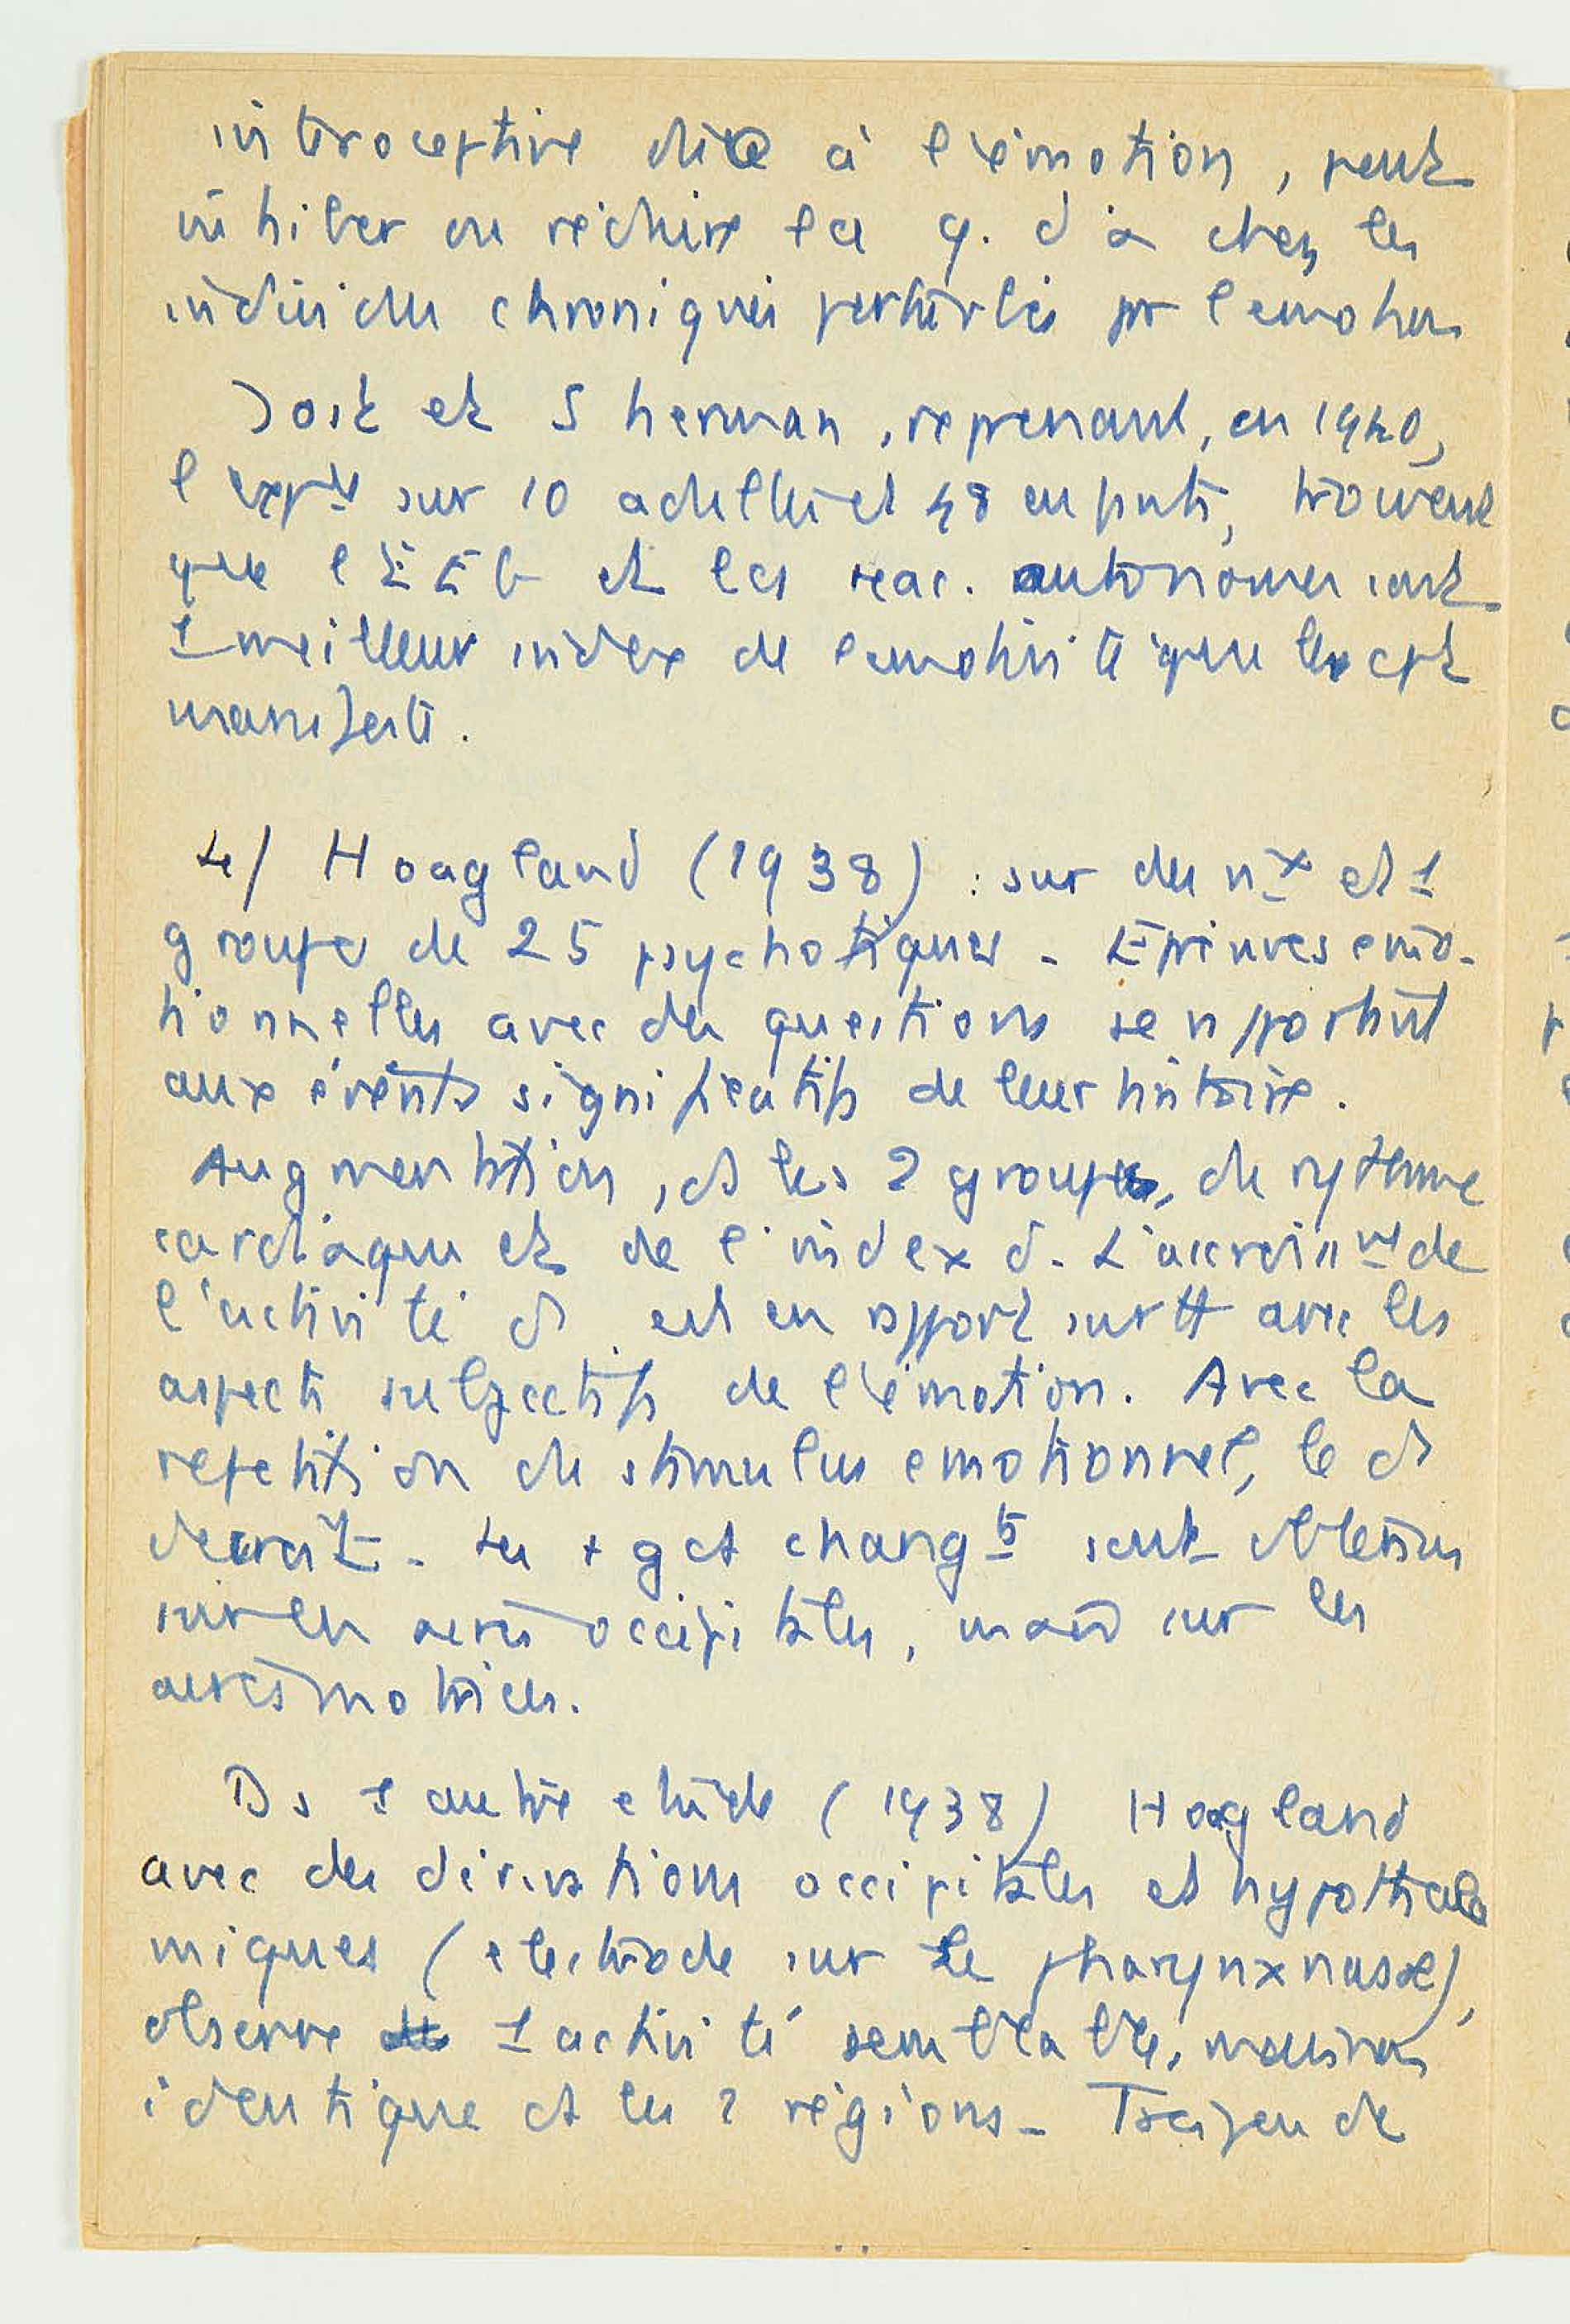 interoceptive due à l'émotion, peut
inhiber ou réduire la q. d'α chez les
individus chroniqués perturbés pr l'emotion
Jost et Sherman, reprenant, en 1940,
l'expce sur 10 adultes et 48 enfants, trouvent
que l'EEG et les reac. autonomes sont
1 meilleur index de l'emotivité que le cpt
manifeste.
4/ Hoagland (1938) : sur des nx et 1
groupe de 25 psychotiques - Epreuves émo-
tionnelles avec des questions se rapportant
aux évents significatifs de leur histoire.
Augmentation, ds les 2 groupes, du rythme
cardiaque et de l'index δ. L'accroisst de
l'activité δ est en rapport surtt avec les
aspects subjectifs de l'émotion. Avec la
repetition du stimulus emotionnel, le δ
decroit - Les + gds changts sont obtenus
sur les aires occipitales, sur les
aires motrices.
Ds 1 autre etude (1938) Hoagland
avec des dérivations occipitales et hypothala
miques (electrode sur le pharynx nasal),
observe 1 activité semblable, mais non
identique ds les 2 régions - de